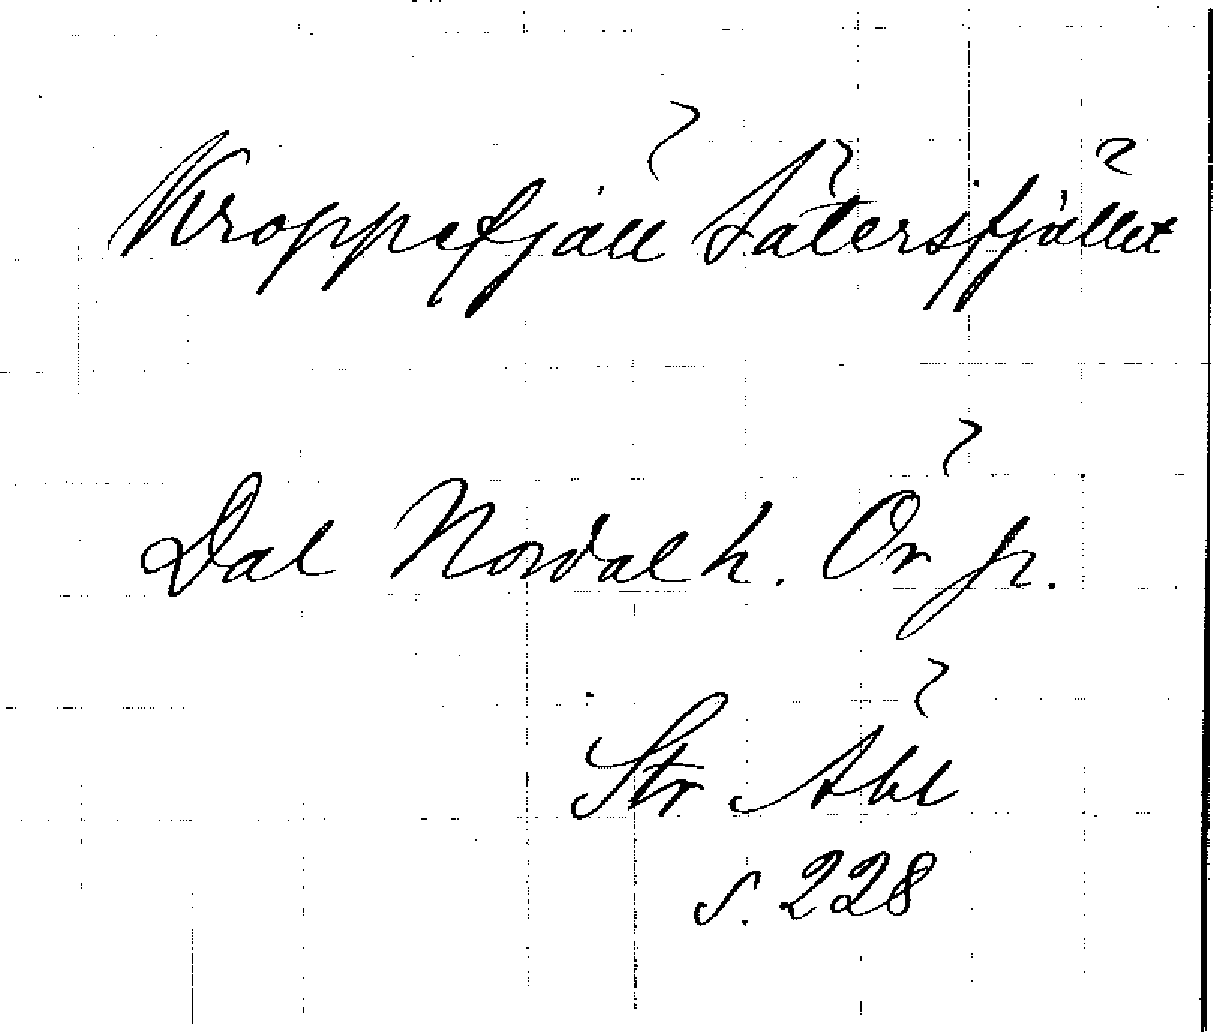 Kroppefjäll Sätersfjället
Dal Nordal h. Ör fr.
Str Åbl
s. 228